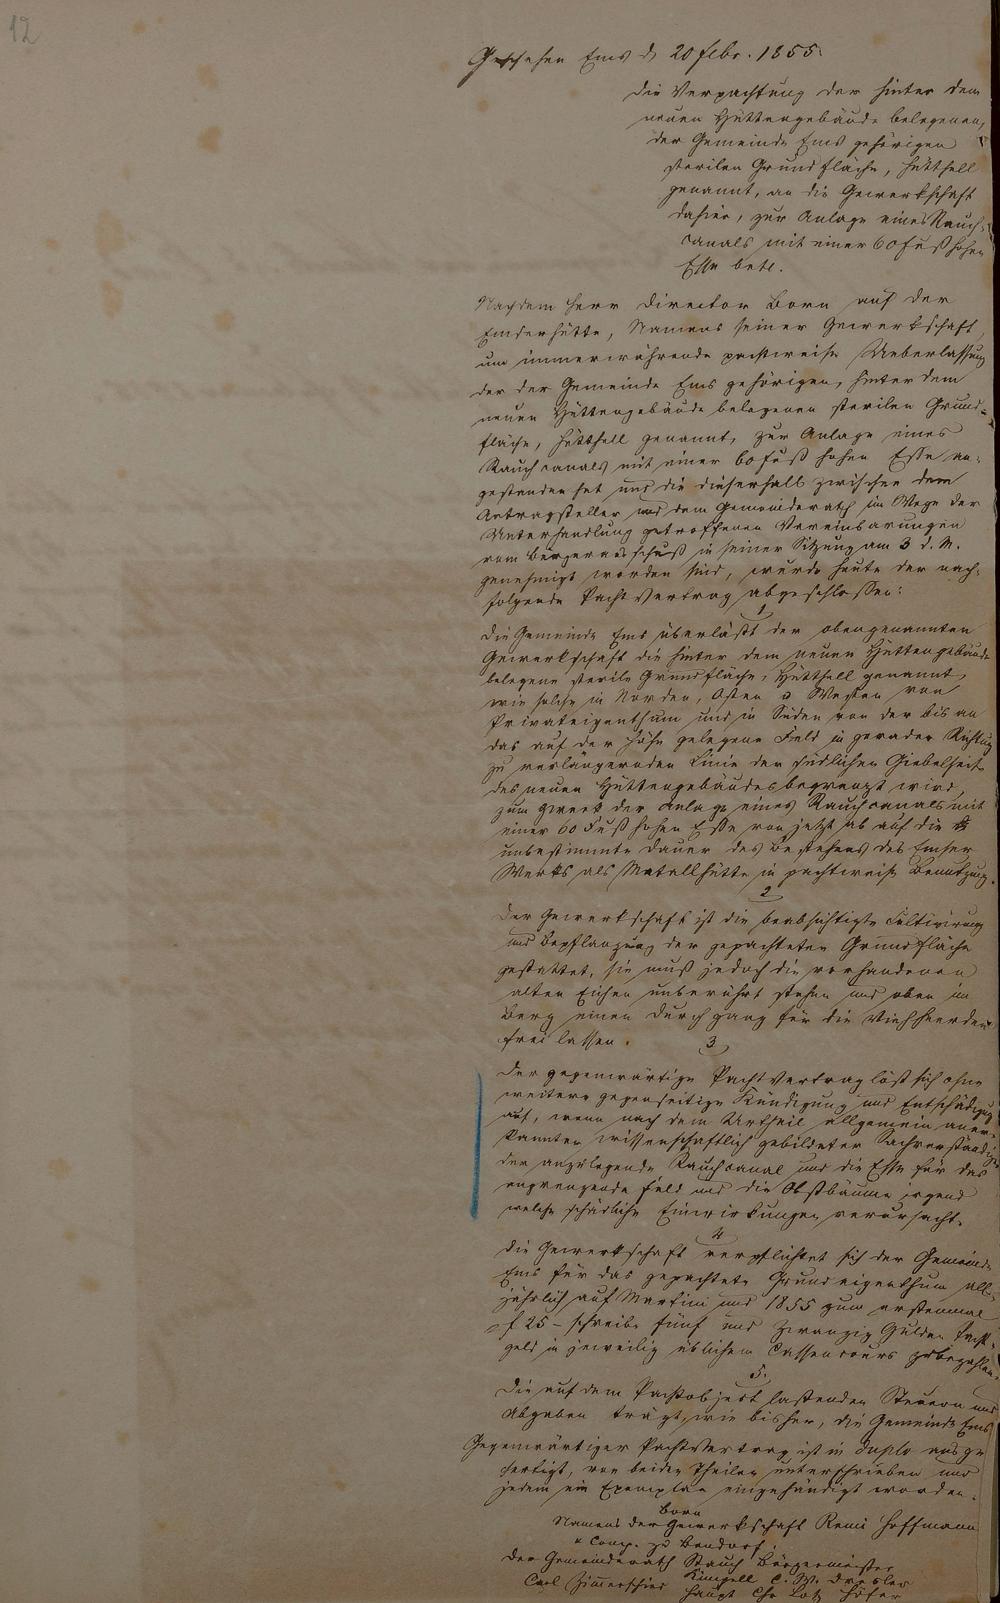 12
Geschehen Ems d. 20 febr. 1855.
Die Verpachtung der hinter dem
neuen Hüttengebäude belegenen,
der Gemeinde Ems gehörigen
sterilen Grundfläche, Hütthell
genannt, an die Gewerkschaft
dahier, zur Anlage eines Rauch-
canals mit einer 60 fuß hohen
Esse betr.
Nachdem Herr Director Born auf der
Emserhütte, Namens seiner Gewerkschaft,
um immerwährende pachtweise Ueberlassung
der der Gemeinde Ems gehörigen, hinter dem
neuen Hüttengebäude belegenen sterilen Grund-
fläche, Hütthell genannt, zur Anlage eines
Rauchcanals mit einer 60 fuß hohen Esse an-
gestanden hat und die dieserhalb zwischen dem
Antragsteller und dem Gemeinderath im Wege der
Unterhandlung getroffenen Vereinbarungen
vom Bürgerausschuß in seiner Sitzung am 3 d. M.
genehmigt worden sind, wurde heute der nach-
folgende Pachtvertrag abgeschlossen:
1
Die Gemeinde Ems überläßt der obengenannten
Gewerkschaft die hinter dem neuen Hüttengebäude
belegene sterile Grundfläche, Hütthell genannt,
wie solche in Norden, Osten u Westen von
Privateigenthum und in Süden von der bis an
das auf der Höhe gelegene Feld in gerader Richtung
zu verlängernden Linie der südlichen Giebelseite
des neuen Hüttengebäudes begrenzt wird,
zum Zweck der Anlage eines Rauchcanals mit
einer 60 Fuß hohen Esse von jetzt ab auf die
unbestimmte Dauer des Bestehens des Emser
Werks als Metallhütte in pachtweise Benutzung.
2
Der Gewerkschaft ist die beabsichtigte Cultivirung
und Bepflanzung der gepachteten Grundfläche
gestattet, sie muß jedoch die vorhandenen
alten Eichen unberührt stehen und oben im
Berg einen Durchgang für die Viehheerden
frei lassen.
3
Der gegenwärtige Pachtvertrag löst sich ohne
weitere gegenseitige Kündigung und Entschädigung
auf, wenn nach dem Urtheil allgemein aner-
kannter wissenschaftlich gebildeter Sachverständiger
der anzulegende Rauchcanal und die Esse für das
angrenzende Feld und die Obstbäume irgend
welche schädliche Einwirkungen verursacht.
4
Die Gewerkschaft verpflichtet sich der Gemeinde
Ems für das gepachtete Grundeigenthum all-
jährlich auf Martini und 1855 zum erstenmal
f 25 – schreibe fünf und zwanzig Gulden Pacht-
geld in jeweilig üblichem Cassencours zu bezahlen.
5.
Die auf dem Pachtobject lastenden Steuern und
Abgaben trägt, wie bisher, die Gemeinde Ems.
Gegenwärtiger Pachtvertrag ist in duplo ausge
fertigt, von beiden Theilen unterschrieben und
jedem ein Exemplar eingehändigt worden.
Born
Namens der Gewerkschaft Remi Hoffmann
u Comp. zu Bendorf.
Der Gemeinderath Rauch Bürgermeister
C. W. Dresler
Carl Zimmerschied Haupt Chr Lotz Höfer